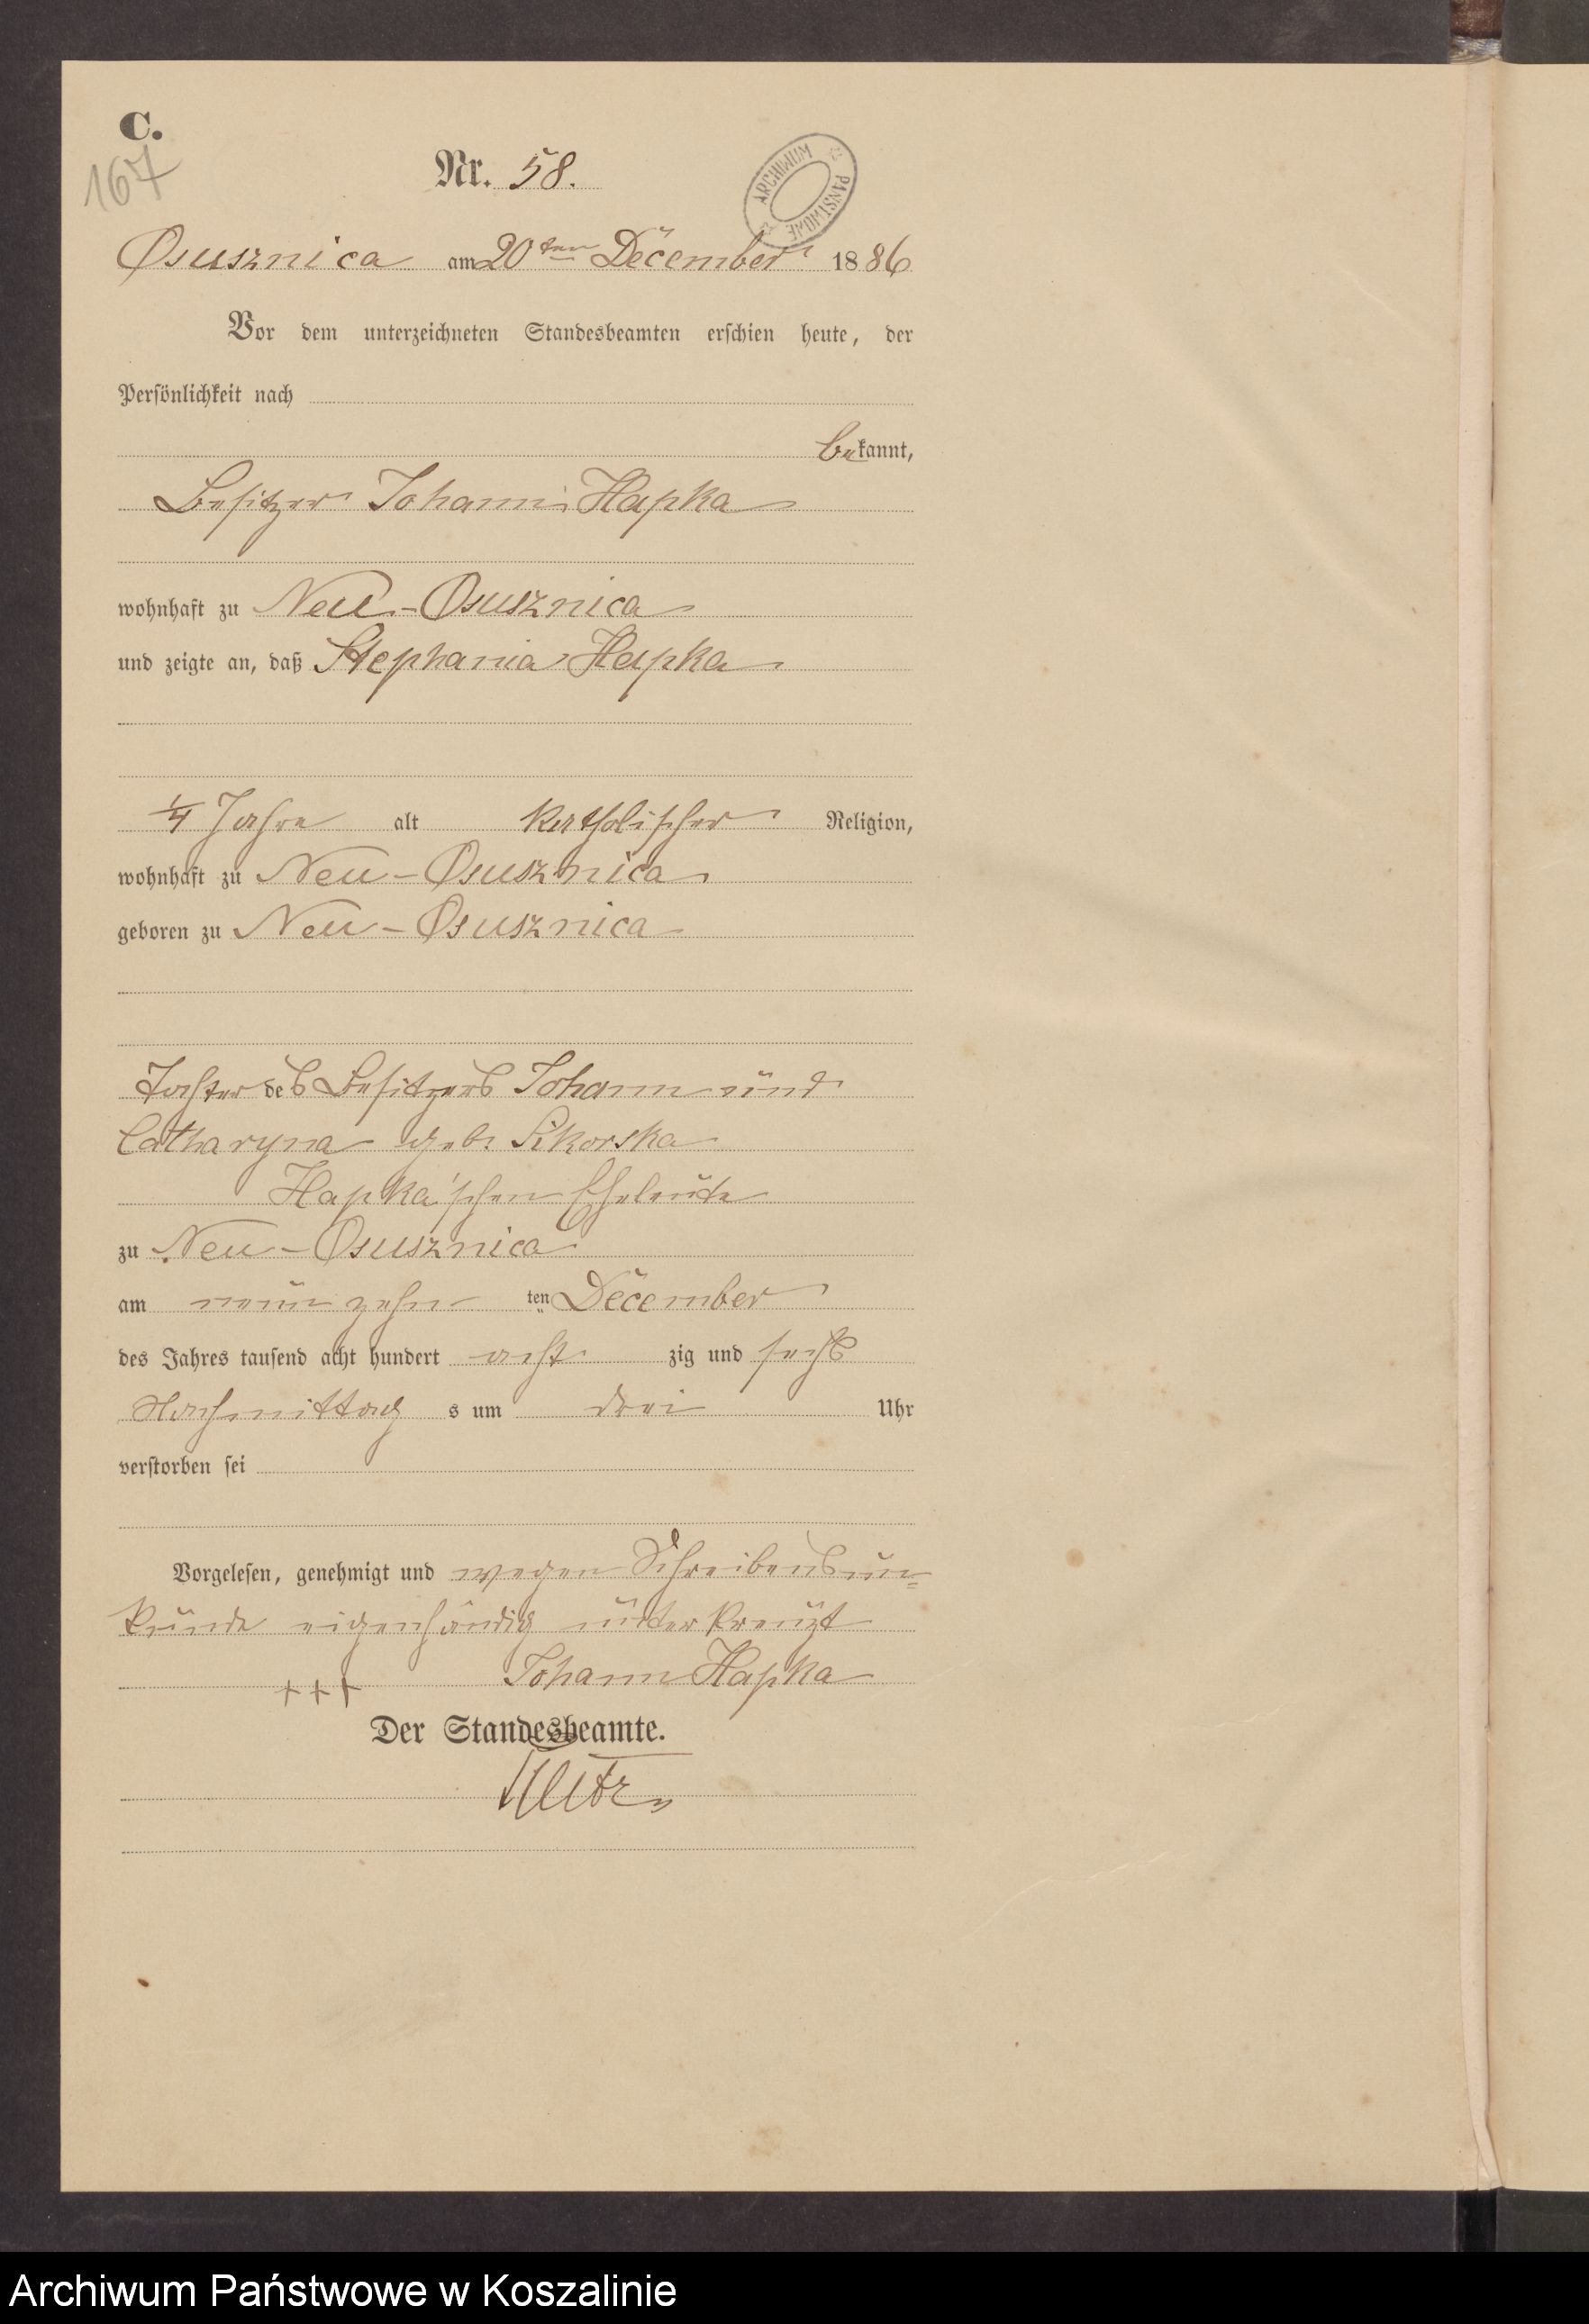 C.
167
Nr. 58.
ARCHIWUM PAŃSTWOWE
Osusznica am 20ten December 1886
Vor dem unterzeichneten Standesbeamten erschien heute, der
Persönlichkeit nach
bekannt,
Besitzer Johann Hapka
wohnhaft zu Neu-Osusznica
und zeigte an, daß Stephania Hapka
1/4 Jahre alt katholischer Religion,
wohnhaft zu Neu-Osusznica
geboren zu Neu-Osusznica
Tochter des Besitzers Johann und
Catharyna geb. Sikorska
Hapka'schen Eheleute
zu Neu-Osusznica
am neunzehn ten December
des Jahres tausend acht hundert acht zig und sechs
Nachmittag s um drei Uhr
verstorben sei
Vorgelesen, genehmigt und wegen Schreibensun=
kunde eigenhändig unterkreuzt
+++ Johann Hapka
Der Standesbeamte.
Archiwum Państwowe w Koszalinie